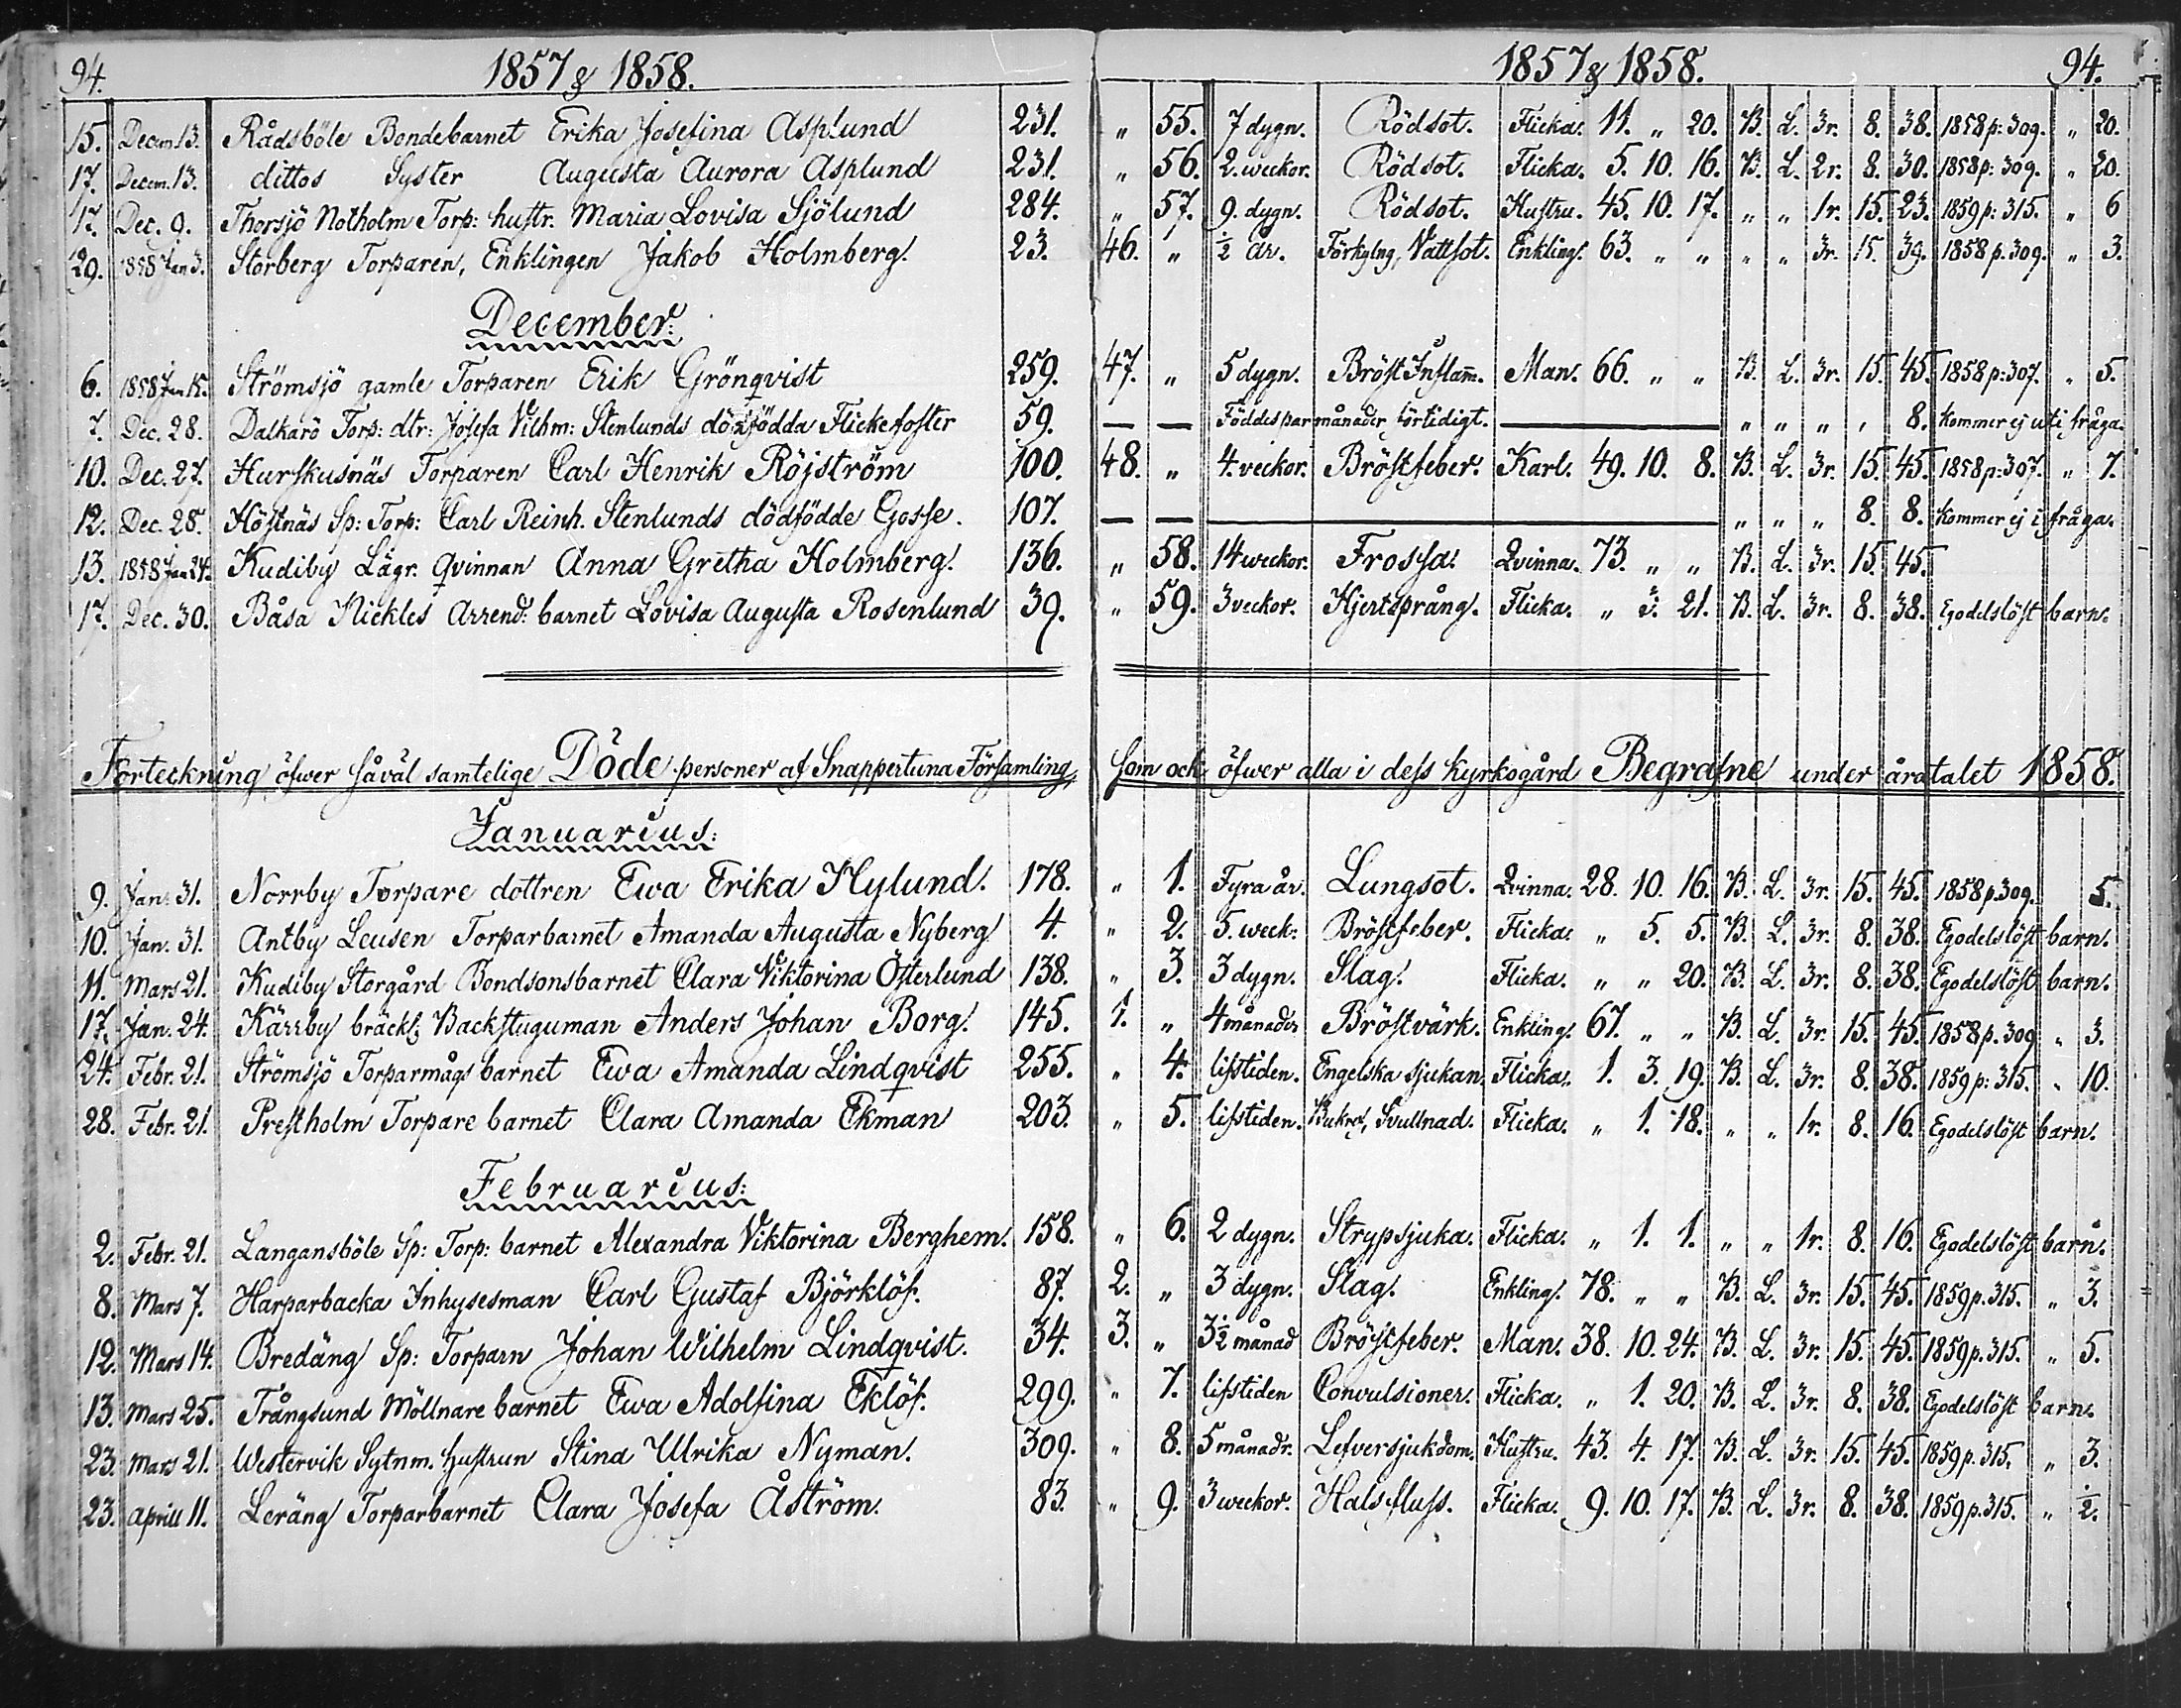 94. 1857 & 1858. 1857 & 1858. 94.
15. Decem 13. Rådsböle Bondebarnet Erika Josefina Asplund 231. " 55. 7 dygn. Rödsot. Flicka. 11. " 20. B. L. 3r. 8. 38. 1858 p: 309. " 20.
17. Decem. 13. dittos Syster Augusta Aurora Asplund 231. " 56. 2. weckor. Rödsot. Flicka. 5. 10. 16. B. L. 2r. 8. 30. 1858 p: 309. " 20.
17. Dec. 9. Thorsjö Notholm Torp: hustr. Maria Lovisa Sjölund 284. " 57. 9. dygn. Rödsot. Hustru. 45. 10. 17. " " 1r. 15. 23. 1859 p: 315. " 6
29. 1858 Jan 3. Storberg Torparen, Enklingen Jakob Holmberg. 23. 46. " ½ År. Förkylng, Vattsot. Enkling. 63. " " " " 3r. 15. 39. 1858 p. 309. " 3.
December:
6. 1858 Jan 15. Strömsjö gamle Torparen Erik Grönqvist 259. 47. " 5 dygn. Bröst Inflam. Man. 66. " " B. L. 3r. 15. 45. 1858 p: 307. " 5.
7. Dec. 28. Dalkarö Torp: dtr: Josefa Vilhm: Stenlunds dödfödda Flickefoster 59. — — Föddes par månader förtidigt. — " " " " 8. Kommer ej uti fråga.
10. Dec. 27. Hurskusnäs Torparen Carl Henrik Röjström 100. 48. " 4. veckor. Bröstfeber. Karl. 49. 10. 8. B. L. 3r. 15. 45. 1858 p: 307. " 7.
12. Dec. 28. Höstnäs Sp: Torp: Carl Reinh. Stenlunds dödfödde Gosse. 107. — — — " " " 8. 8. Kommer ej i fråga.
13. 1858 Jan 24. Kudiby Lägr. qvinnan Anna Gretha Holmberg. 136. " 58. 14 weckor. Frossa. Qvinna. 73. " " B. L. 3r. 15. 45.
17. Dec. 30. Båsa Nickles Arrend: barnet Lovisa Augusta Rosenlund 39. " 59. 3 veckor. Hjertsprång. Flicka. " 3. 21. B. L. 3r. 8. 38. Egodelslöst barn.
Förteckning öfwer såväl samtelige Döde personer af Snappertuna Församling, som ock öfwer alla i dess Kyrkogård Begrafne under åratalet 1858.
Januarius:
9. Jan. 31. Norrby Torpare dottren Ewa Erika Hylund. 178. " 1. Fyra år. Lungsot. Qvinna. 28. 10. 16. B. L. 3r. 15. 45. 1858 p. 309. 5.
10. Jan. 31. Antby Leusen Torparbarnet Amanda Augusta Nyberg 4. " 2. 5. weck: Bröstfeber. Flicka. " 5. 5. B. L. 3r. 8. 38. Egodelslöst barn.
11. Mars 21. Kudiby Storgård Bondsonsbarnet Clara Viktorina Österlund 138. " 3. 3 dygn. Slag. Flicka. " " 20. B. L. 3r. 8. 38. Egodelslöst barn.
17. Jan. 24. Kärrby bräckl: Backstuguman Anders Johan Borg. 145. 1. " 4 månader Bröstvärk. Enkling. 67. " " B. L. 3r. 15. 45. 1858 p. 309 " 3.
24. Febr. 21. Strömsjö Torparmågs barnet Ewa Amanda Lindqvist 255. " 4. lifstiden. Engelska sjukan. Flicka. 1. 3. 19. B. L. 3r. 8. 38. 1859 p: 315. " 10.
28. Febr. 21. Prestholm Torpare barnet Clara Amanda Ekman 203. " 5. lifstiden. Svullnad. Flicka. " 1. 18. " " 1r. 8. 16. Egodelslöst barn.
Februarius:
2. Febr. 21. Langansböle Sp: Torp: barnet Alexandra Viktorina Berghem. 158. " 6. 2 dygn. Strypsjuka. Flicka. " 1. 1. " " 1r. 8. 16. Egodelslöst barn.
8. Mars 7. Harparbacka Inhysesman Carl Gustaf Björklöf. 87. 2. " 3 dygn. Slag. Enkling. 78. " " B. L. 3r. 15. 45. 1859 p. 315. " 3.
12. Mars 14. Bredäng Sp: Torparn Johan Wilhelm Lindqvist. 34. 3. " 3½ månad Bröstfeber. Man. 38. 10. 24. B. L. 3r. 15. 45. 1859 p. 315. " 5.
13. Mars 25. Trångsund Möllnare barnet Ewa Adolfina Eklöf. 299. " 7. lifstiden Convulsioner. Flicka. " 1. 20. B. L. 3r. 8. 38. Egodelslöst barn.
23. Mars 21. Westervik Sytnm. hustrun Stina Ulrika Nyman. 309. " 8. 5 månadr. Lefversjukdom. Hustru. 43. 4. 17. B. L. 3r. 15. 45. 1859 p. 315. " 3.
23. Aprill 11. Leräng Torparbarnet Clara Josefa Åström. 83. " 9. 3 weckor. Halsfluss. Flicka. 9. 10. 17. B. L. 3r. 8. 38. 1859 p. 315. " ½.